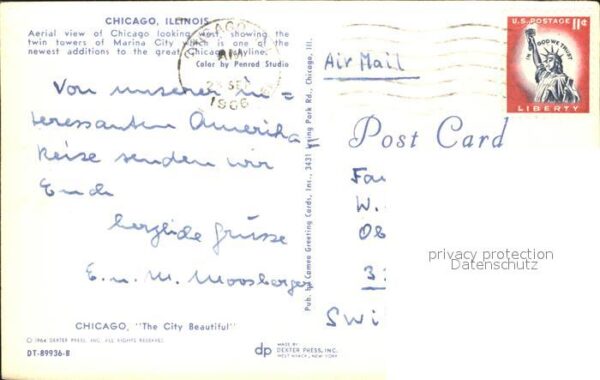 CHICAGO, ILLINOIS
Aerial view of Chicago looking west, showing the
twin towers of Marina City which is one of the
newest additions to the great Chicago skyline.
Color by Penrod Studio
CHICAGO
AM
SE
1966
U.S. POSTAGE 11¢
IN GOD WE TRUST
LIBERTY
Air Mail
Von unserer in=
teressanten Amerika
Reise senden wir
Euch
herzliche Grüsse
E. u. M. Moosberger
Post Card
Fa
W.
Ob
3
SWi
privacy protection
Datenschutz
Pub. by Cameo Greeting Cards, Inc., 3431 Irving Park Rd., Chicago, Ill.
CHICAGO, "The City Beautiful"
© 1964 DEXTER PRESS, INC. ALL RIGHTS RESERVED.
DT-89936-B
dp
MADE BY
DEXTER PRESS, INC.
WEST NYACK, NEW YORK